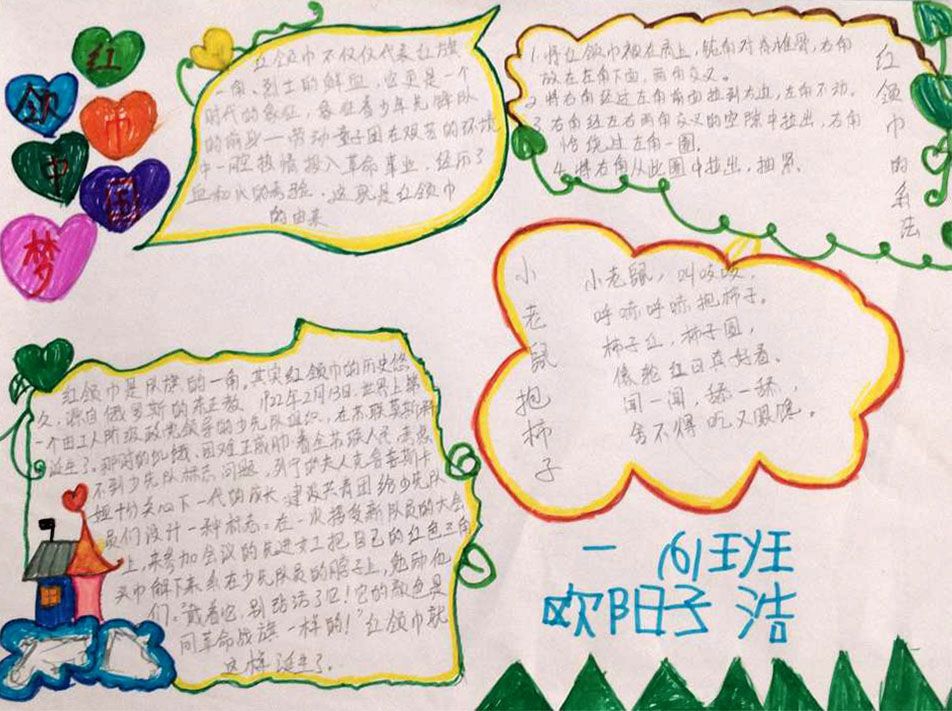 红
领
巾
中
国
梦
红领巾不仅仅代表红旗
一角、烈士的鲜血,它更是一个
时代的象征,象征着少年先锋队
的前身——劳动童子团在艰苦的环境
中一腔热情投入革命事业,经历了
血和火的考验。这就是红领巾
的由来
红领巾的系法
1. 将红领巾披在肩上,钝角对脊椎骨,右角
放在左角下面,两角交叉。
2. 将右角经过左角前面拉到右边,左角不动。
3. 右角经左右两角交叉的空隙中拉出,右角
恰绕过左角一圈。
4. 将右角从此圈中拉出,抽紧。
小老鼠抱柿子
小老鼠,叫吱吱,
呼哧呼哧抱柿子。
柿子红,柿子圆,
像轮红日真好看。
闻一闻,舔一舔,
舍不得吃又眼馋。
红领巾是队旗的一角。其实红领巾的历史悠
久,源自俄罗斯的东正教。1922年2月13日,世界上第
一个由工人阶级政党领导的少先队组织,在苏联莫斯科
诞生了。那时的饥饿、困难正威胁着全苏联人民,
不到少先队标志问题,列宁的夫人克鲁普斯卡
娅十分关心下一代的成长,建议共青团给少先队
员们设计一种标志。在一次接受新队员的大会
上,来参加会议的先进女工把自己的红色三角
头巾解下来系在少先队员的脖子上,勉励他
们:“戴着它,别玷污了它!它的颜色是
同革命战旗一样的!”红领巾就
这样诞生了。
一(6)班
欧阳子浩